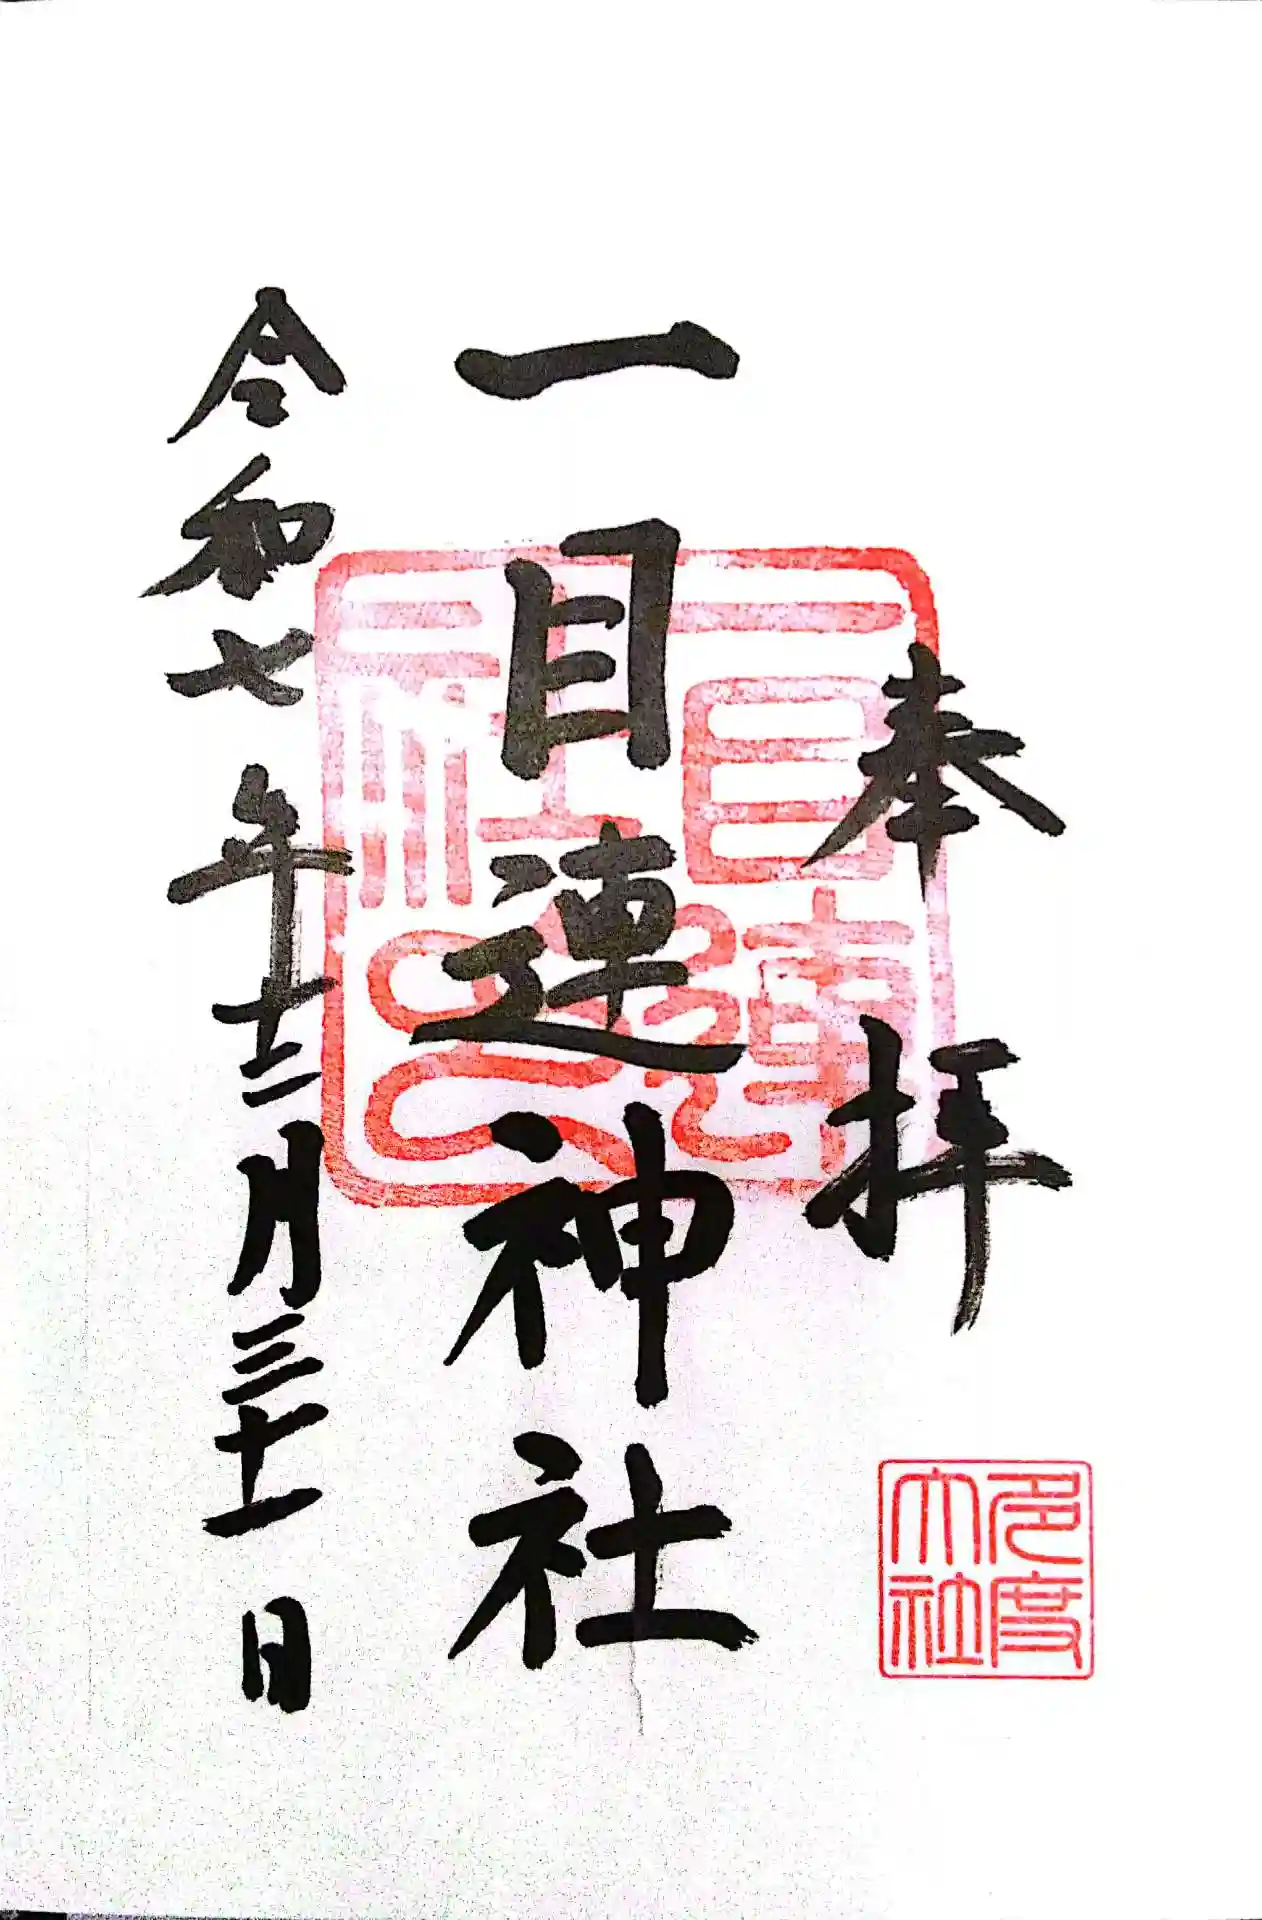 奉拝
多度大社
一目連神社
一目連
社
令和七年十二月三十一日